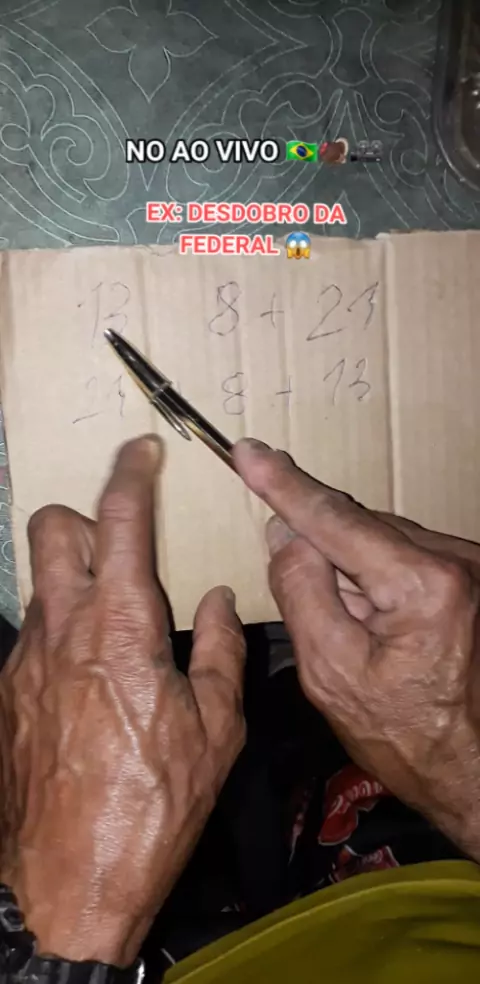 NO AO VIVO 🇧🇷
EX: DESDOBRO DA
FEDERAL 😱
13 8 + 21
21 8 + 13